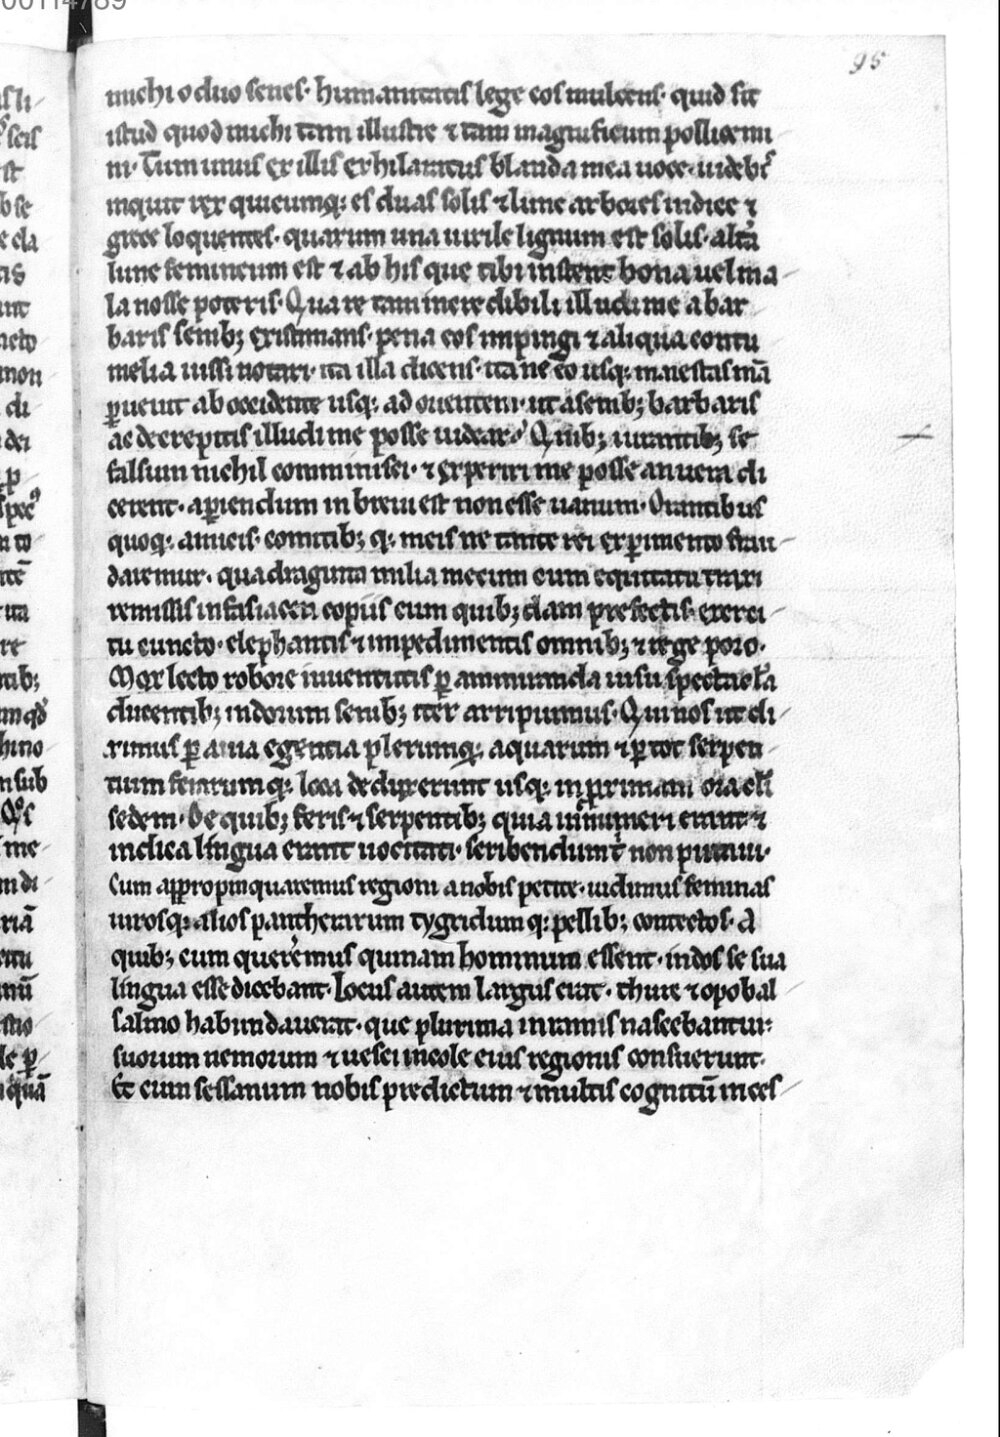 00114789
95
michi o duo senes· humanitatis lege eos mulcens· quid sit
istud quod michi tam illustre ⁊ tam magnificum pollicemi
ni· Tum unus ex illis exhilaratus blanda mea uoce· uidebꝭ
inquit rex quicumq; es duas solis ⁊ lune arbores indice ⁊
grece loquentes· quarum una uirile lignum est solis· altͣa
lune femineum est ⁊ ab his que tibi instent bona uel ma-
la nosse poteris· Qua re tam incredibili illudi me a bar
baris senib; existimans· pena eos impingi ⁊ aliqua contu
melia iussi notari· ita illa dicens· ita ne eo usq; maiestas mā
ꝑuenit ab occidente usq; ad orientem· ut a senib; barbaris
ac decrepitis illudi me posse uidear? Quib; iurantib; se
falsum nichil comminisci· ⁊ experiri me posse an uera di
cerent· apiendum in breui est non esse uanum· Orantibus
quoq; amicis· comitib; q; meis ne tante rei exꝑimento frau-
daremur· quadraginta milia mecum cum equitatu traxi
remissis in fasiacen copiis cum quib;dam prefectis· exerci-
tu cuncto· elephantis ⁊ impedimentis omnib; ⁊ rege poro·
Mox lecto robore iuuentutis ꝑ ammiranda uisu spectacͣla
ducentib; indorum senib; iter arripuimus· Qui nos ut di-
ximus ꝑ auia egentia plerumq; aquarum ⁊ ꝑ tot serpen-
tium ferarumq; loca deduxerunt usq; in proximam oracͣli
sedem· De quib; feris ⁊ serpentib; quia innumeri erant ⁊
indica lingua erant uocitati· scribendum non putaui·
Cum appropinquaremus regioni a nobis petite· uidimus feminas
uirosq; alios pantherarum tygridum q; pellib; contectos· A
quib; cum quereremus quinam hominum essent· indos se sua
lingua esse dicebant· Locus autem largus erat· thure ⁊ opobal-
salmo habundauerat· que plurima in ramis nascebantur
suorum nemorum ⁊ uesci incole eius regionis consuerunt·
Et cum sessanum nobis predictum ⁊ multis cognitū inces-